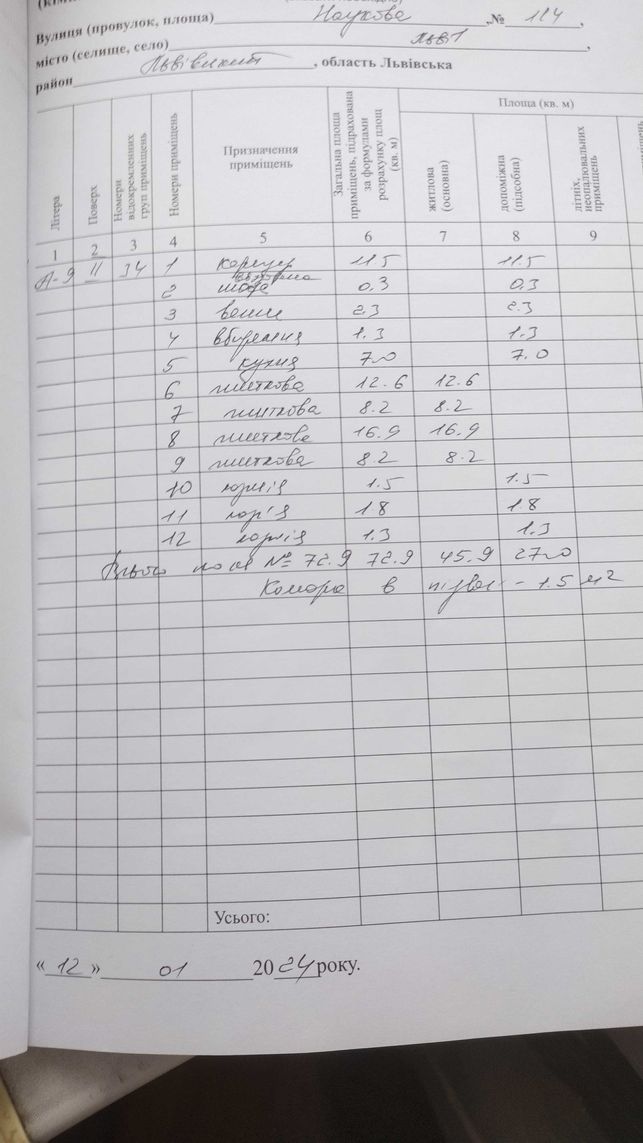 Вулиця (провулок, площа) Наукова ,№ 114 ,
місто (селище, село) Львів ,
район Львівський , область Львівська
Літера Поверх Номери відокремленних груп приміщень Номери приміщень Призначення приміщень Загальна площа приміщень, підрахована за формулами розрахунку площ (кв. м) Площа (кв. м) житлова (основна) допоміжна (підсобна) літніх, неопалювальних приміщень
1 2 3 4 5 6 7 8 9
А-9 II 34 1 коридор 11.5 11.5
2 вбудована шафа 0.3 0.3
3 ванна 2.3 2.3
4 вбиральня 1.3 1.3
5 кухня 7.0 7.0
6 житлова 12.6 12.6
7 житлова 8.2 8.2
8 житлова 16.9 16.9
9 житлова 8.2 8.2
10 лоджія 1.5 1.5
11 1.8 1.8
12 лоджія 1.3 1.3
Всього по кв № 72.9 45.9 27.0
Комора в підвалі - 1.5 м2
Усього:
«12» 01 2024 року.